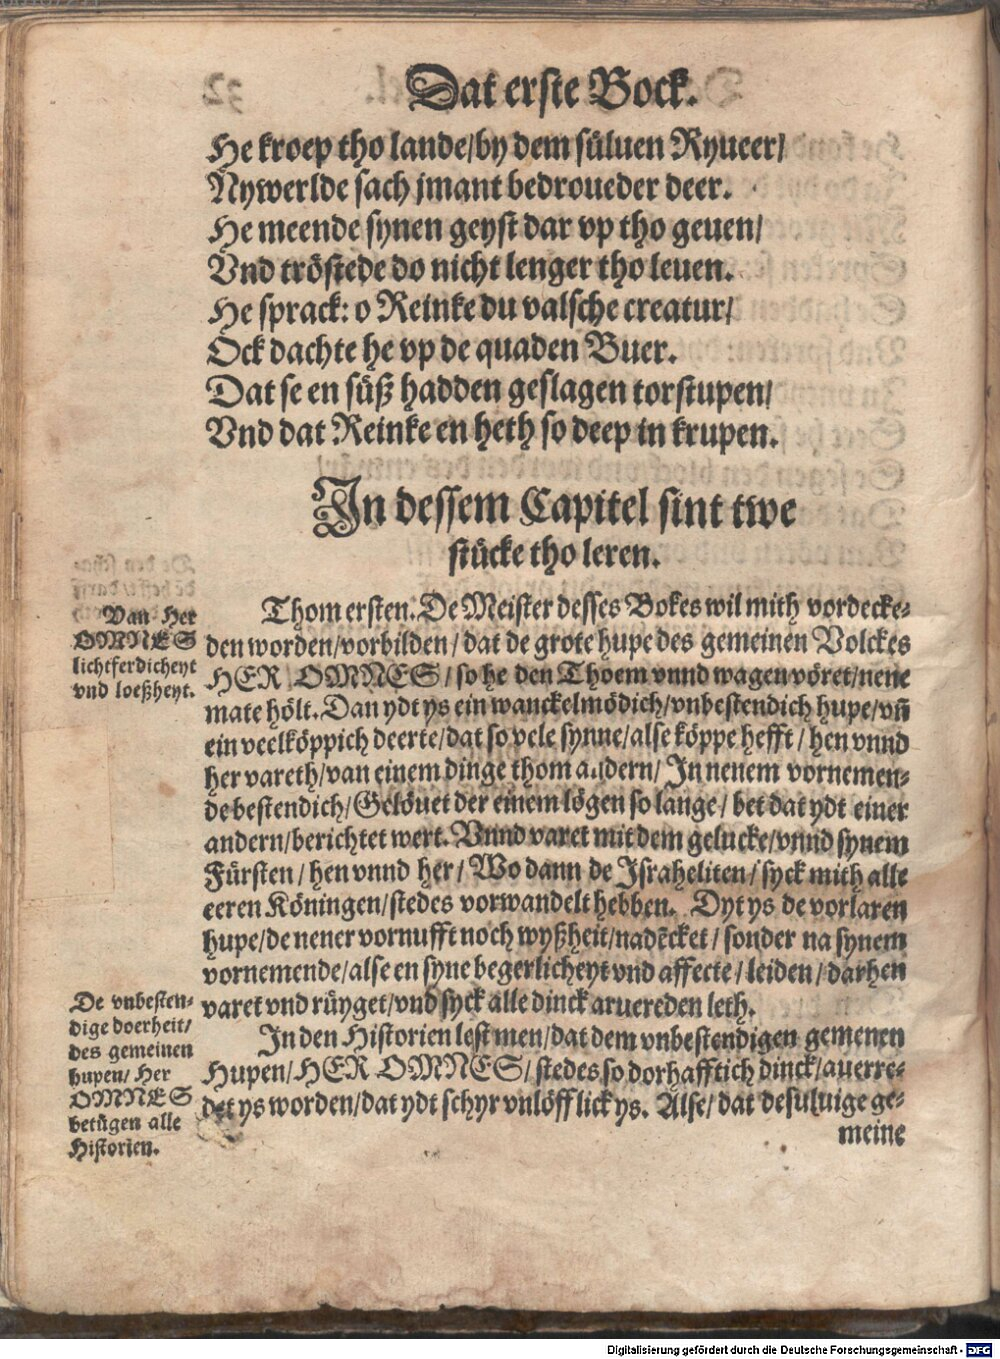 Dat erste Bock.
He kroep tho lande/by dem süluen Ryueer/
Nywerlde sach jmant bedroueder deer.
He meende synen geyst dar vp tho geuen/
Vnd tröstede do nicht lenger tho leuen.
He sprack: o Reinke du valsche creatur/
Ock dachte he vp de quaden Buer.
Dat se en süß hadden geslagen torstupen/
Vnd dat Reinke en heth so deep in krupen.
In dessem Capitel sint twe
stücke tho leren.
Van Her
OMNES
lichtferdicheyt
vnd loeßheyt.
Thom ersten. De Meister desses Bokes wil mith vordecke-
den worden/vorbilden/dat de grote hupe des gemeinen Volckes
HER OMNES/so he den Thoem vnnd wagen vöret/nene
mate hölt. Dan ydt ys ein wanckelmödich/vnbestendich hupe/vñ
ein veelköppich deerte/dat so vele synne/alse köppe hefft/hen vnnd
her vareth/van einem dinge thom andern/In nenem vornemen-
de bestendich/Gelöuet der einem lögen so lange/bet dat ydt einer
andern/berichtet wert. Vnnd varet mit dem gelucke/vnnd synem
Fürsten/hen vnnd her/Wo dann de Israheliten/syck mith alle
eeren Köningen/stedes vorwandelt hebben. Dyt ys de vorlaren
hupe/de nener vornufft noch wyßheit/nadẽcket/sonder na synem
vornemende/alse en syne begerlicheyt vnd affecte/leiden/darhen
varet vnd rüyget/vnd syck alle dinck aruereden leth.
De vnbesten-
dige doerheit/
des gemeinen
hupen/Her
OMNES
betügen alle
Historien.
In den Historien lest men/dat dem vnbestendigen gemenen
Hupen/HER OMNES/stedes so dorhafftich dinck/auerre-
det ys worden/dat ydt schyr vnlöfflick ys. Alse/dat desuluige ge-
meine
Digitalisierung gefördert durch die Deutsche Forschungsgemeinschaft - DFG